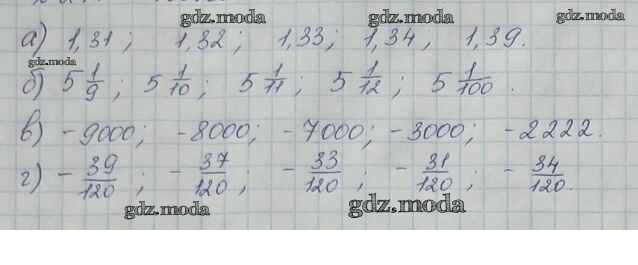 gdz.moda gdz.moda gdz.moda
а) 1,31; 1,32; 1,33; 1,34; 1,39.
gdz.moda
б) 5 1/9; 5 1/10; 5 1/11; 5 1/12; 5 1/100.
в) -9000; -8000; -7000; -3000; -2222.
г) -39/120; -37/120; -33/120; -31/120; -34/120.
gdz.moda gdz.moda
gdz.moda